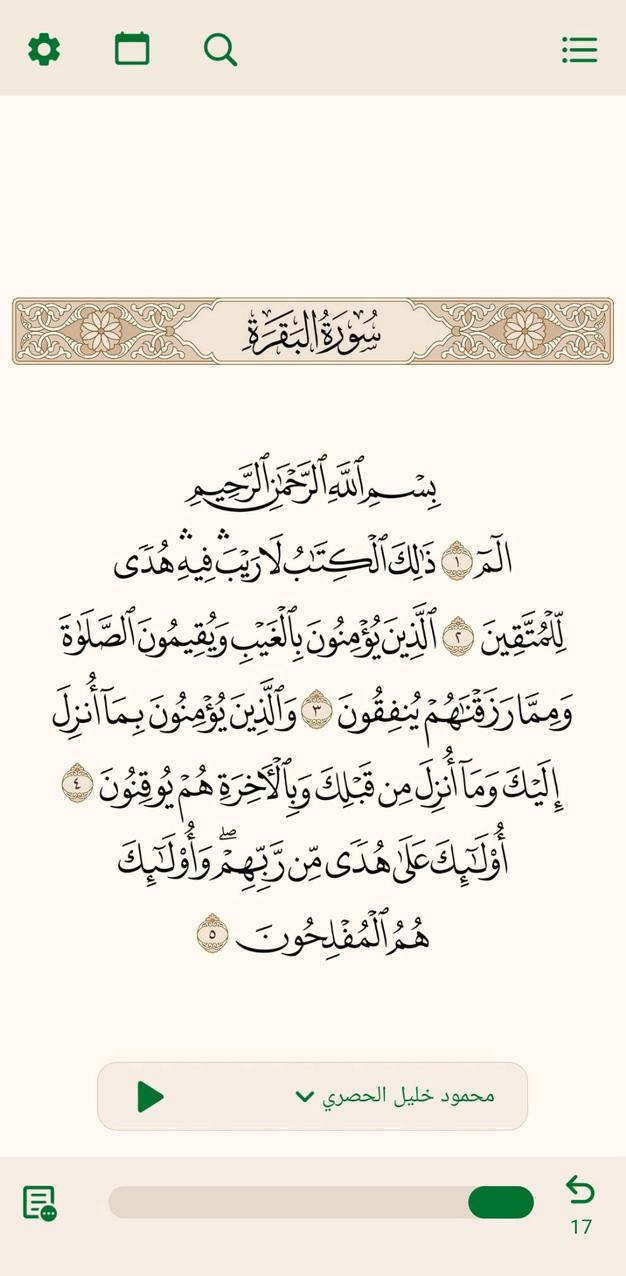 سُورَةُ البَقَرَةِ
بِسْمِ ٱللَّهِ ٱلرَّحْمَٰنِ ٱلرَّحِيمِ
الٓمٓ ١ ذَٰلِكَ ٱلْكِتَٰبُ لَا رَيْبَ ۛ فِيهِ ۛ هُدًى
لِّلْمُتَّقِينَ ٢ ٱلَّذِينَ يُؤْمِنُونَ بِٱلْغَيْبِ وَيُقِيمُونَ ٱلصَّلَوٰةَ
وَمِمَّا رَزَقْنَٰهُمْ يُنفِقُونَ ٣ وَٱلَّذِينَ يُؤْمِنُونَ بِمَآ أُنزِلَ
إِلَيْكَ وَمَآ أُنزِلَ مِن قَبْلِكَ وَبِٱلْأٓخِرَةِ هُمْ يُوقِنُونَ ٤
أُو۟لَٰٓئِكَ عَلَىٰ هُدًى مِّن رَّبِّهِمْ ۖ وَأُو۟لَٰٓئِكَ
هُمُ ٱلْمُفْلِحُونَ ٥
محمود خليل الحصري
17